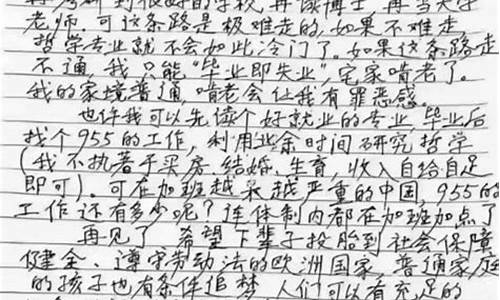 再考研到很好的学校,再读博士,再当大学
老师,可这条路是极难走的,如果不难走
哲学专业就不会如此冷门了。如果这条路走
不通,我只能“毕业即失业”,宅家啃老了。
我的家境普通,啃老会让我有罪恶感。
也许我可以先读个好就业的专业,毕业后
找个955的工作,利用业余时间研究哲学
(我不执着于买房、结婚、生育,收入自给自足
即可)。可在加班越来越严重的中国,955的
工作还有多少呢?连体制内都在加班加点了
再见了 希望下辈子投胎到社会保障
健全、遵守劳动法的欧洲国家,普通家庭
的孩子也有条件追梦 人们可以有充足的